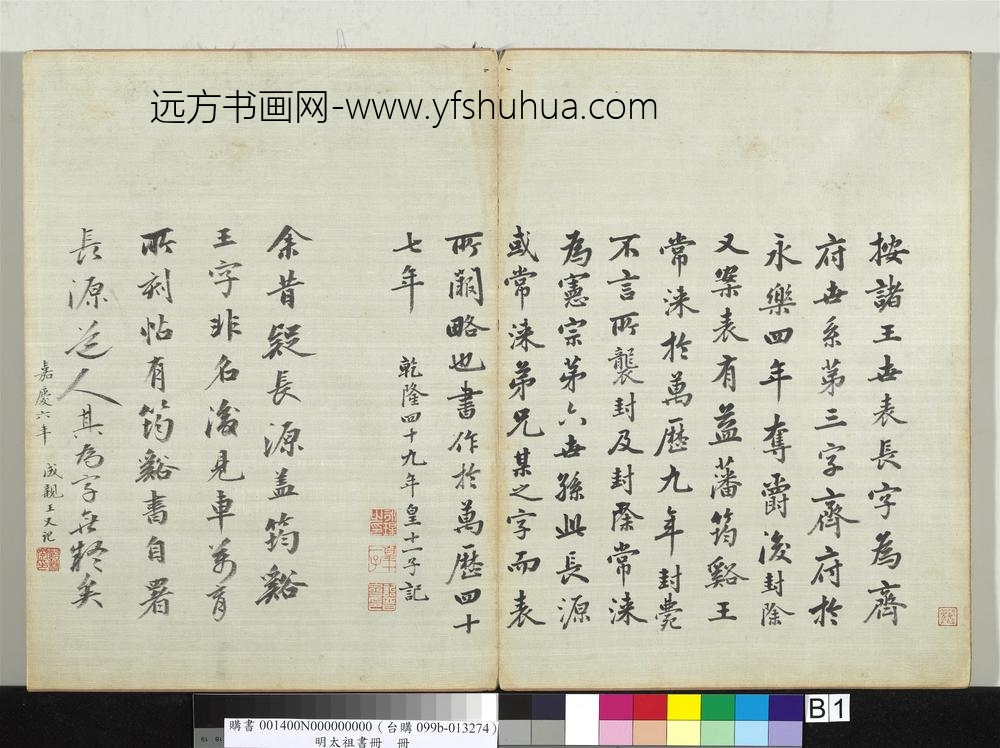 远方书画网-www.yfshuhua.com
按諸王世表長字為齊
府世系第三字齊府於
永樂四年奪爵後封除
又案表有益藩筠谿王
常涞於萬歷九年封薨
不言所襲封及封除常涞
為憲宗第六世孫此長源
或常涞弟兄某之字而表
所闕略也書作於萬歷四十
七年
乾隆四十九年皇十一子記
余昔疑長源盖筠谿
王字非名後見車萬育
所刻帖有筠谿書自署
長源道人其為字無疑矣
嘉慶六年 成親王又記
購書 001400N000000000 (台購 099b-013274)
明太祖書冊 冊
B 1